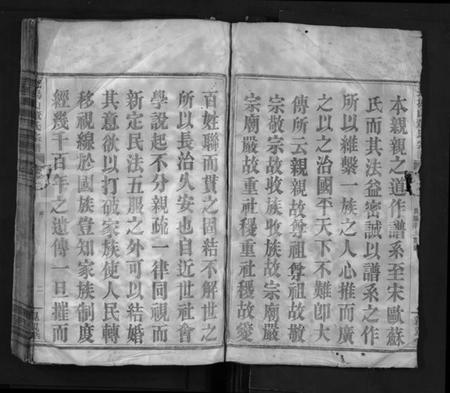 本親親之道作譜系至宋歐蘇
氏而其法益密誠以譜系之作
所以維繫一族之人心推而廣
之以之治國平天下不難卽大
傳所云親親故尊祖尊祖故敬
宗敬宗故收族收族故宗廟嚴
宗廟嚴故重社稷重社稷故愛
百姓聯而貫之固結不解世之
所以長治久安也自近世社會
學說起不分親疏一律同視而
新定民法五服之外可以結婚
其意欲以打破家族使人民轉
移視線於國族豈知家族制度
經幾千百年之遺傳一旦摧而